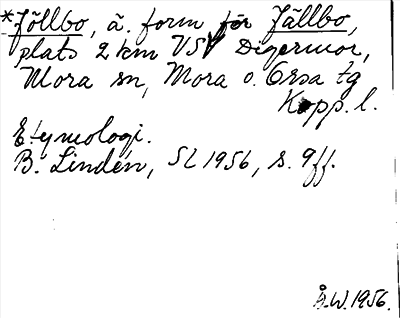 *Jöllbo, ä. form för Jällbo,
plats 2 km VSV Digermor,
Mora sn, Mora o. Orsa tg
Kopp. l.
Etymologi.
B. Lindén, SL 1956, s. 9 ff.
B.W. 1956.